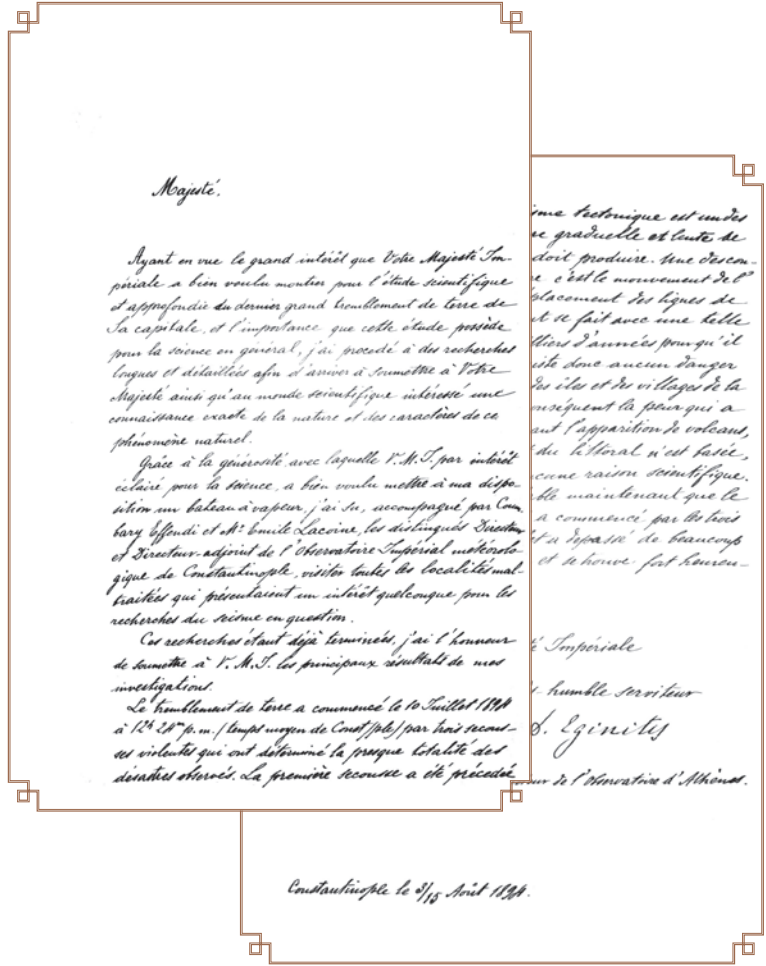 Majesté.
Ayant en vue le grand intérêt que Votre Majesté Im-
périale a bien voulu montrer pour l'étude scientifique
et approfondie du dernier grand tremblement de terre de
Sa capitale, et l'importance que cette étude possède
pour la science en général, j'ai procédé à des recherches
longues et détaillées afin d'arriver à soumettre à Votre
Majesté ainsi qu'au monde scientifique intéressé une
connaissance exacte de la nature et des caractères de ce
phénomène naturel.
Grâce à la générosité, avec laquelle V. M. I. par intérêt
éclairé pour la science, a bien voulu mettre à ma dispo-
sition un bateau à vapeur, j'ai su, accompagné par Coum-
bary Effendi et Mr. Emile Lacoine, les distingués Directeur
et Directeur-adjoint de l'Observatoire Impérial météorolo-
gique de Constantinople, visiter toutes les localités mal-
traitées qui présentaient un intérêt quelconque pour les
recherches du seisme en question.
Ces recherches étant déjà terminées, j'ai l'honneur
de soumettre à V. M. I. les principaux résultats de mes
investigations.
Le tremblement de terre a commencé le 10 Juillet 1894
à 12h 24m p. m. (temps moyen de Const/ple) par trois secous-
ses violentes qui ont déterminé la presque totalité des
désastres observés. La première secousse a été précédée
isme tectonique est un des
re graduelle et lente de
doit produire. Une descen-
c'est le mouvement de l'
placement des lignes de
nt se fait avec une telle
lliers d'années pour qu'il
iste donc aucun danger
des îles et des villages de la
onséquent la peur qui a
ant l'apparition de volcans,
du littoral n'est basée,
cune raison scientifique.
ble maintenant que le
a commencé par les trois
et a dépassé de beaucoup
et se trouve fort heureu-
té Impériale
humble serviteur
D. Eginitis
eur de l'Observatoire d'Athènes.
Constantinople le 3/15 Août 1894.